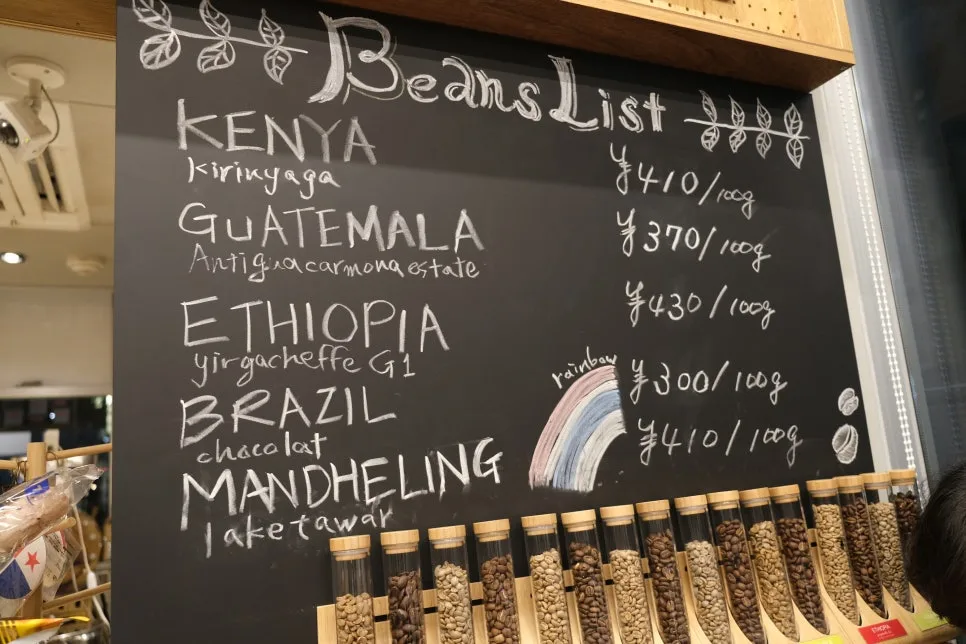 Beans List
KENYA ¥410/100g
kirinyaga
GUATEMALA ¥370/100g
Antigua carmona estate
ETHIOPIA ¥430/100g
yirgacheffe G1
rainbow
BRAZIL ¥300/100g
chocolat
MANDHELING ¥410/100g
lake tawar
ETHIOPIA